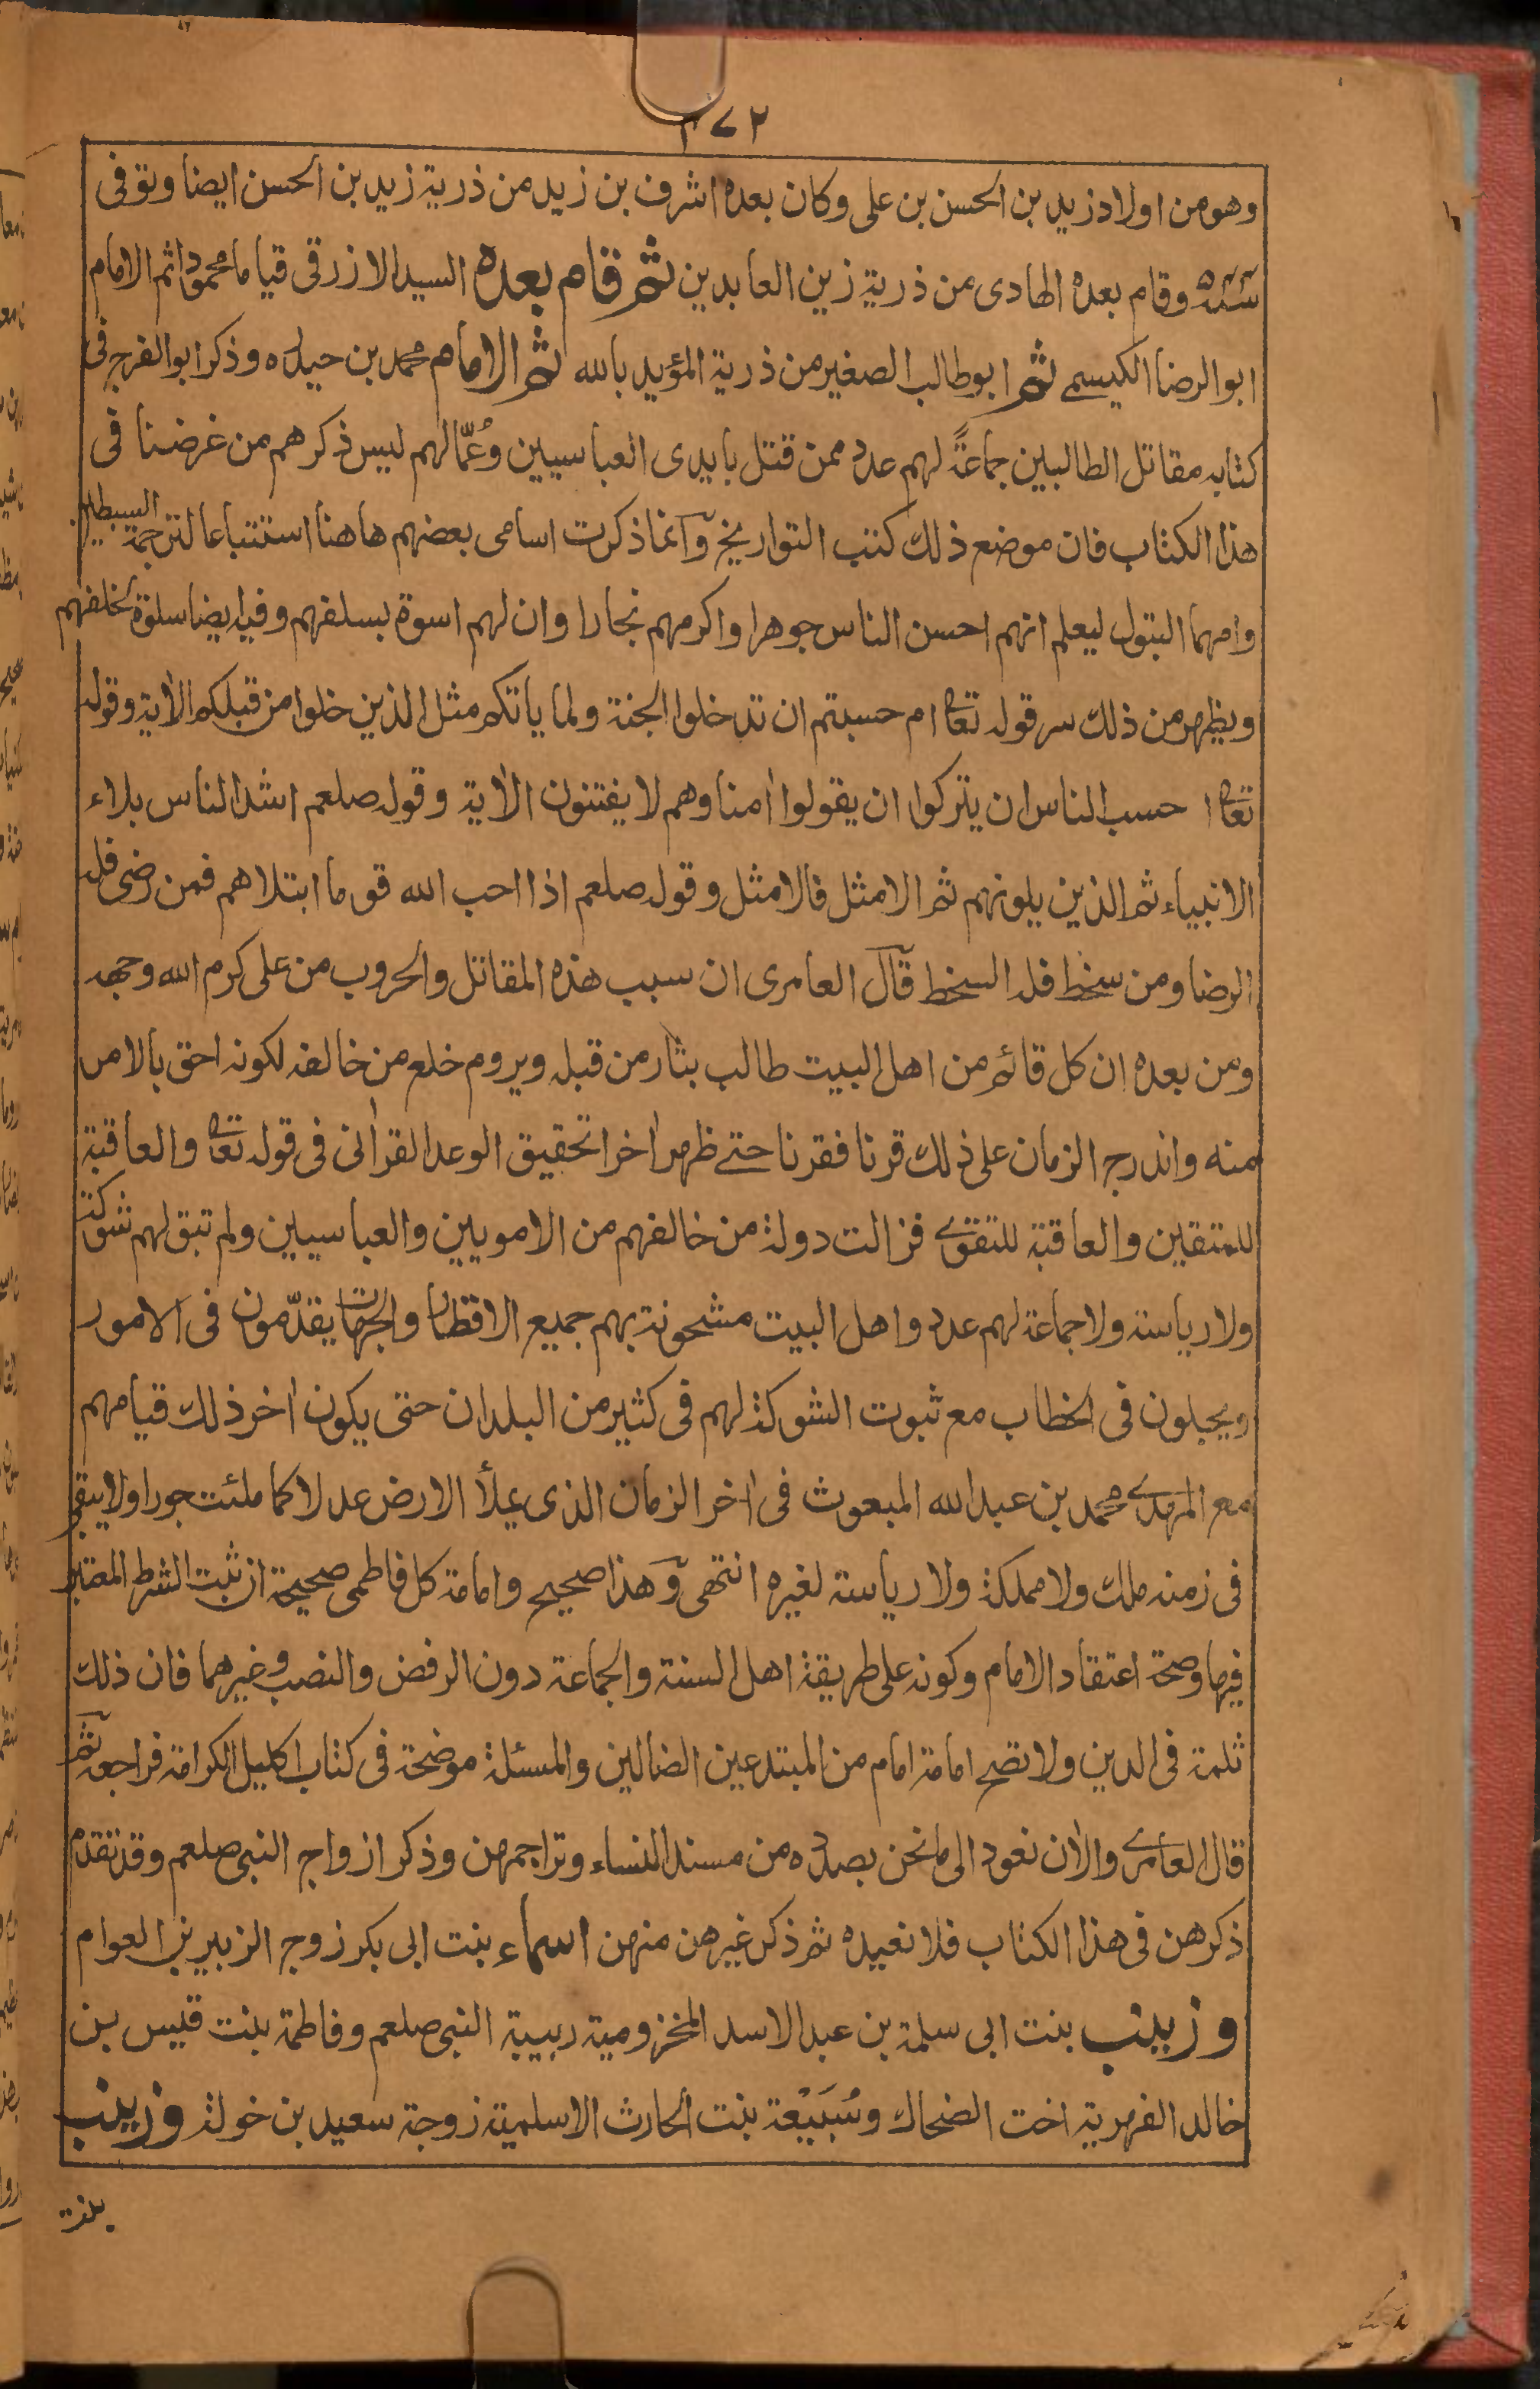 ٢٧٢
وهو من اولاد زيد بن الحسن بن على وكان بعده اشرف بن زيد من ذرية زيد بن الحسن ايضا وتوفى
وقام بعده الهادى من ذرية زين العابدين ثم قام بعده السيد الازرقى قياما محمودا ثم الامام
ابو الرضا الكيسمى ثم ابو طالب الصغير من ذرية المؤيد بالله ثم الامام محمد بن حيدره وذكر ابو الفرج فى
كتابه مقاتل الطالبيين جماعةً لهم عدد ممن قتل بايدى العباسيين وعُمّالهم ليس ذكرهم من غرضنا فى
هذا الكتاب فان موضع ذلك كتب التواريخ وآنما ذكرت اسامى بعضهم هاهنا استتباعا لترجمة السبطين
وامهما البتول ليعلم انهم احسن الناس جوهرا واكرمهم نجارا وان لهم اسوة بسلفهم وفيه ايضا سلوة لخلفهم
ويظهر من ذلك سر قوله تعا ام حسبتم ان تدخلوا الجنة ولما ياتكم مثل الذين خلوا من قبلكم الاٰية وقوله
تعا ا حسب الناس ان يتركوا ان يقولوا اٰمنا وهم لا يفتنون الاٰية وقوله صلعم اشد الناس بلاء
الانبياء ثم الذين يلونهم ثم الامثل فالامثل وقوله صلعم اذا احب الله قوما ابتلاهم فمن رضى فله
الرضا ومن سخط فله السخط قآل العامرى ان سبب هذه المقاتل والحروب من على كرم الله وجهه
ومن بعده ان كل قائم من اهل البيت طالب بثار من قبله ويروم خلع من خالفه لكونه احق بالامر
منه واندرج الزمان على ذلك قرنا فقرنا حتے ظهر اٰخرا تحقيق الوعد القراٰنى فى قوله تعا والعاقبة
للمتقين والعاقبة للتقوے فزالت دولة من خالفهم من الامويين والعباسيين ولم تبق لهم شوكة
ولا رياسة ولا جماعة لهم عدد واهل البيت مشحونة بهم جميع الاقطار والجهات يقدّمون فى الامور
ويبجلون فى الخطاب مع ثبوت الشوكة لهم فى كثير من البلدان حتى يكون اٰخر ذلك قيامهم
مع المهدے محمد بن عبد الله المبعوث فى اٰخر الزمان الذى يملأ الارض عدلا كما ملئت جورا ولا يبقى
فى زمنه ملك ولا مملكة ولا رياسة لغيره انتهى وٓهذا صحيح وامامة كل فاطمى صحيحة ان ثبت الشرط المعتبر
فيها وصحة اعتقاد الامام وكونه على طريقة اهل السنة والجماعة دون الرفض والنصب وغيرهما فان ذلك
ثلمة فى الدين ولا تصح امامة امام من المبتدعين الضالين والمسئلة موضحة فى كتاب اكليل الكرامة فراجعه ثم
قال العامرے والاٰن نعود الى ما نحن بصدده من مسند النساء وتراجمهن وذكر ازواج النبى صلعم وقد تقدم
ذكرهن فى هذا الكتاب فلا نعيده ثم ذكر غيرهن منهن اسماء بنت ابى بكر زوج الزبير بن العوام
وزينب بنت ابى سلمة بن عبد الاسد المخزومية ربيبة النبى صلعم وفاطمة بنت قيس بن
خالد الفهرية اخت الضحاك وسُبَيْعة بنت الحارث الاسلمية زوجة سعيد بن خولة وزينب
بنت